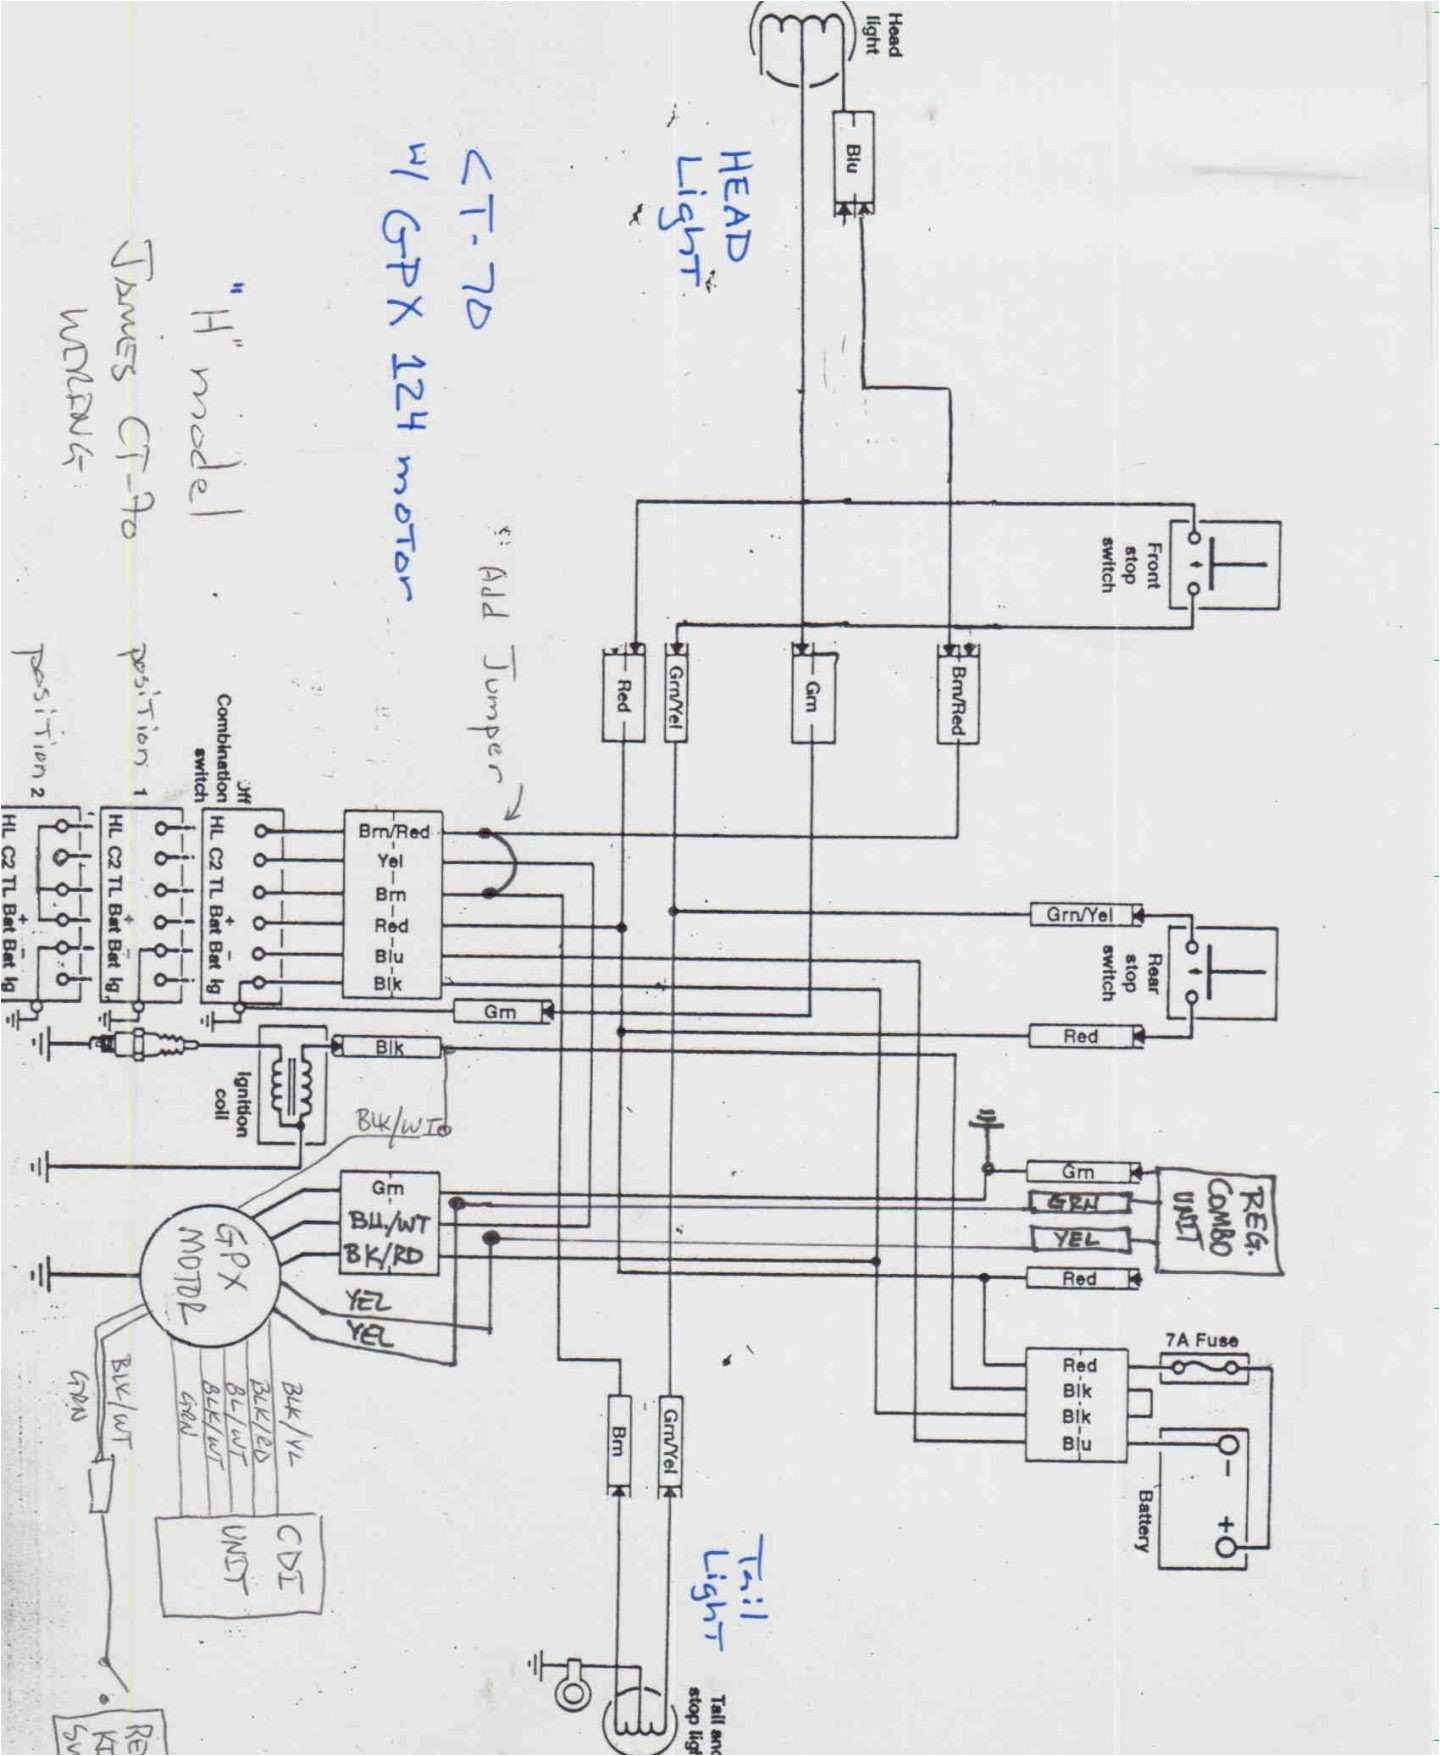 Head
light
Blu
HEAD
Light
CT-70
W/ GPX 124 motor
"H" model
James CT-70
WIRING
Front
stop
switch
Add Jumper
Red
Grn/Yel
Grn
Brn/Red
position 1
position 2
Combination
switch
Off
HL C2 TL Bat Bat Ig
+ -
HL C2 TL Bat Bat Ig
+ -
HL C2 TL Bat Bat Ig
+ -
Brn/Red
Yel
Brn
Red
Blu
Blk
Grn
Blk
Grn/Yel
Rear
stop
switch
Red
Ignition
coil
Grn
GRN
YEL
Red
REG.
COMBO
UNIT
Grn
BU./WT
BK/RD
GPX
MOTOR
YEL
YEL
7A Fuse
Red
Blk
Blk
Blu
-
+
Battery
BLK/YL
BLK/RD
BL/WT
BLK/WT
GRN
BLK/WT
GRN
CDI
UNIT
Brn
Grn/Yel
Tail
Light
stop